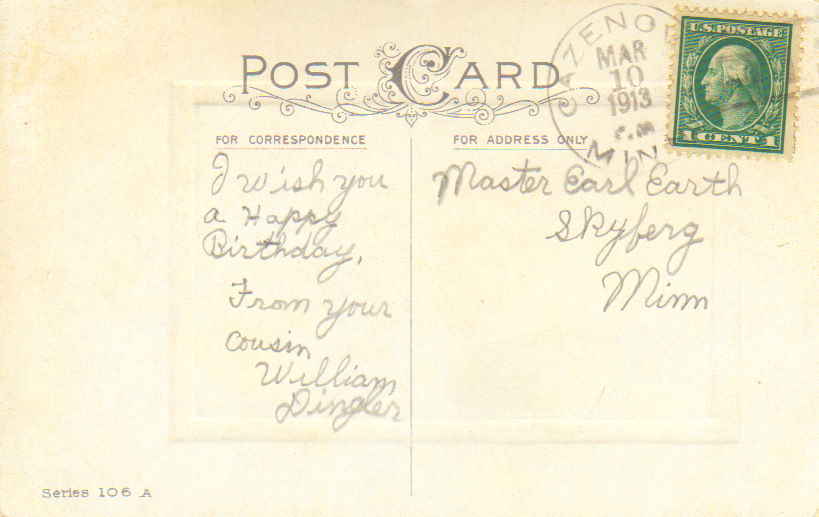 POST CARD
CAZENO
MAR
10
1913
MIN
U.S. POSTAGE
1 CENT 1
FOR CORRESPONDENCE
FOR ADDRESS ONLY
I wish you
a Happy
Birthday,
From your
cousin
William
Dingler
Master Earl Earth
Skyberg
Minn
Series 106 A